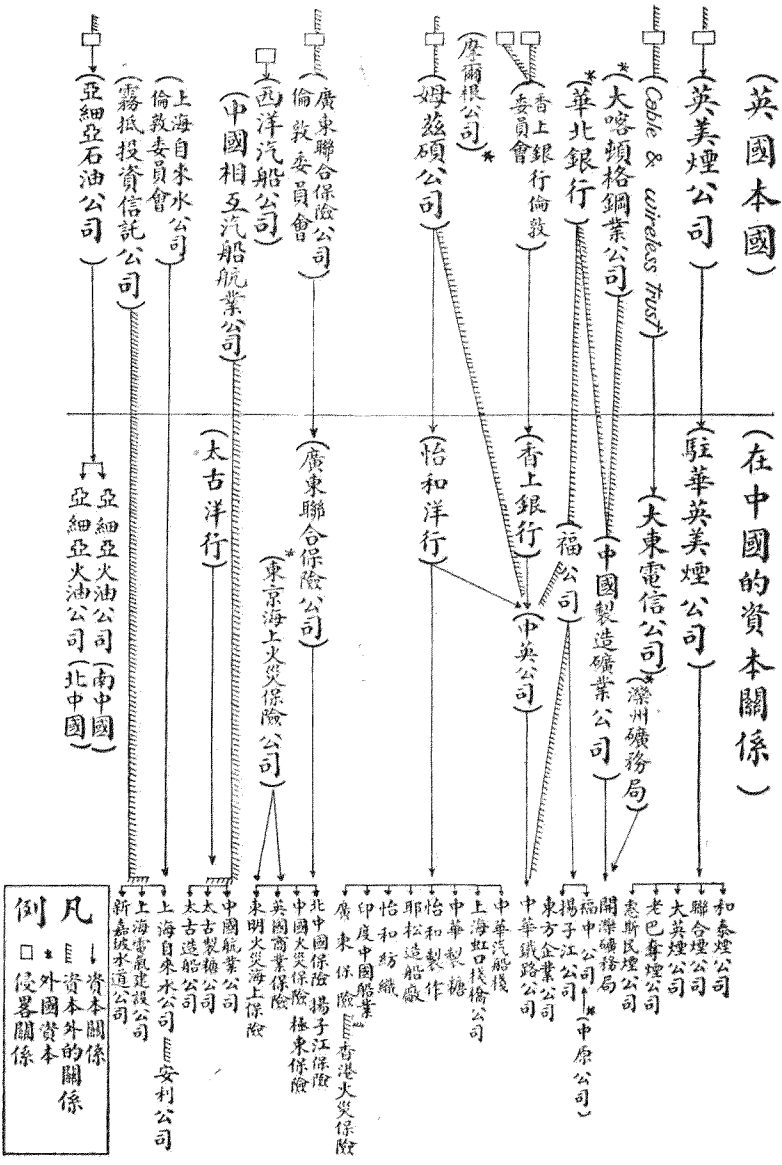 （英國本國）
（英美煙公司）
（Cable & wireless Trust）
*（大喀頓格鋼業公司）
*（華北銀行）
（香上銀行倫敦委員會）
（摩爾根公司）*
（姆茲碩公司）
（廣東聯合保險公司倫敦委員會）
（西洋汽船公司）
（中國相互汽船航業公司）
（上海自來水公司倫敦委員會）
（霧抵投資信託公司）
（亞細亞石油公司）
（在中國的資本關係）
（駐華英美煙公司）
（大東電信公司）
*（灤州礦務局）
（中國製造礦業公司）
（福公司）
（香上銀行）
（中英公司）
（怡和洋行）
（廣東聯合保險公司）
*（東京海上火災保險公司）
（太古洋行）
亞細亞火油公司（南中國）
亞細亞火油公司（北中國）
和泰煙公司
聯合煙公司
大英煙公司
老巴奪煙公司
惠斯民煙公司
開灤礦務局
福中公司
*（中原公司）
揚子江公司
東方企業公司
中華鐵路公司
中華汽船棧
上海虹口棧橋公司
中華製糖
怡和製作
耶松造船廠
怡和紡織
印度中國船業
廣東保險
香港火災保險
北中國保險 揚子江保險
中國火災保險 極東保險
英國商業保險
東明火災海上保險
中國航業公司
太古製糖公司
太古造船公司
上海自來水公司
安利公司
上海電氣建設公司
新嘉坡水道公司
凡例
↓資本關係
資本外的關係
* 外國資本
□ 侵畧關係